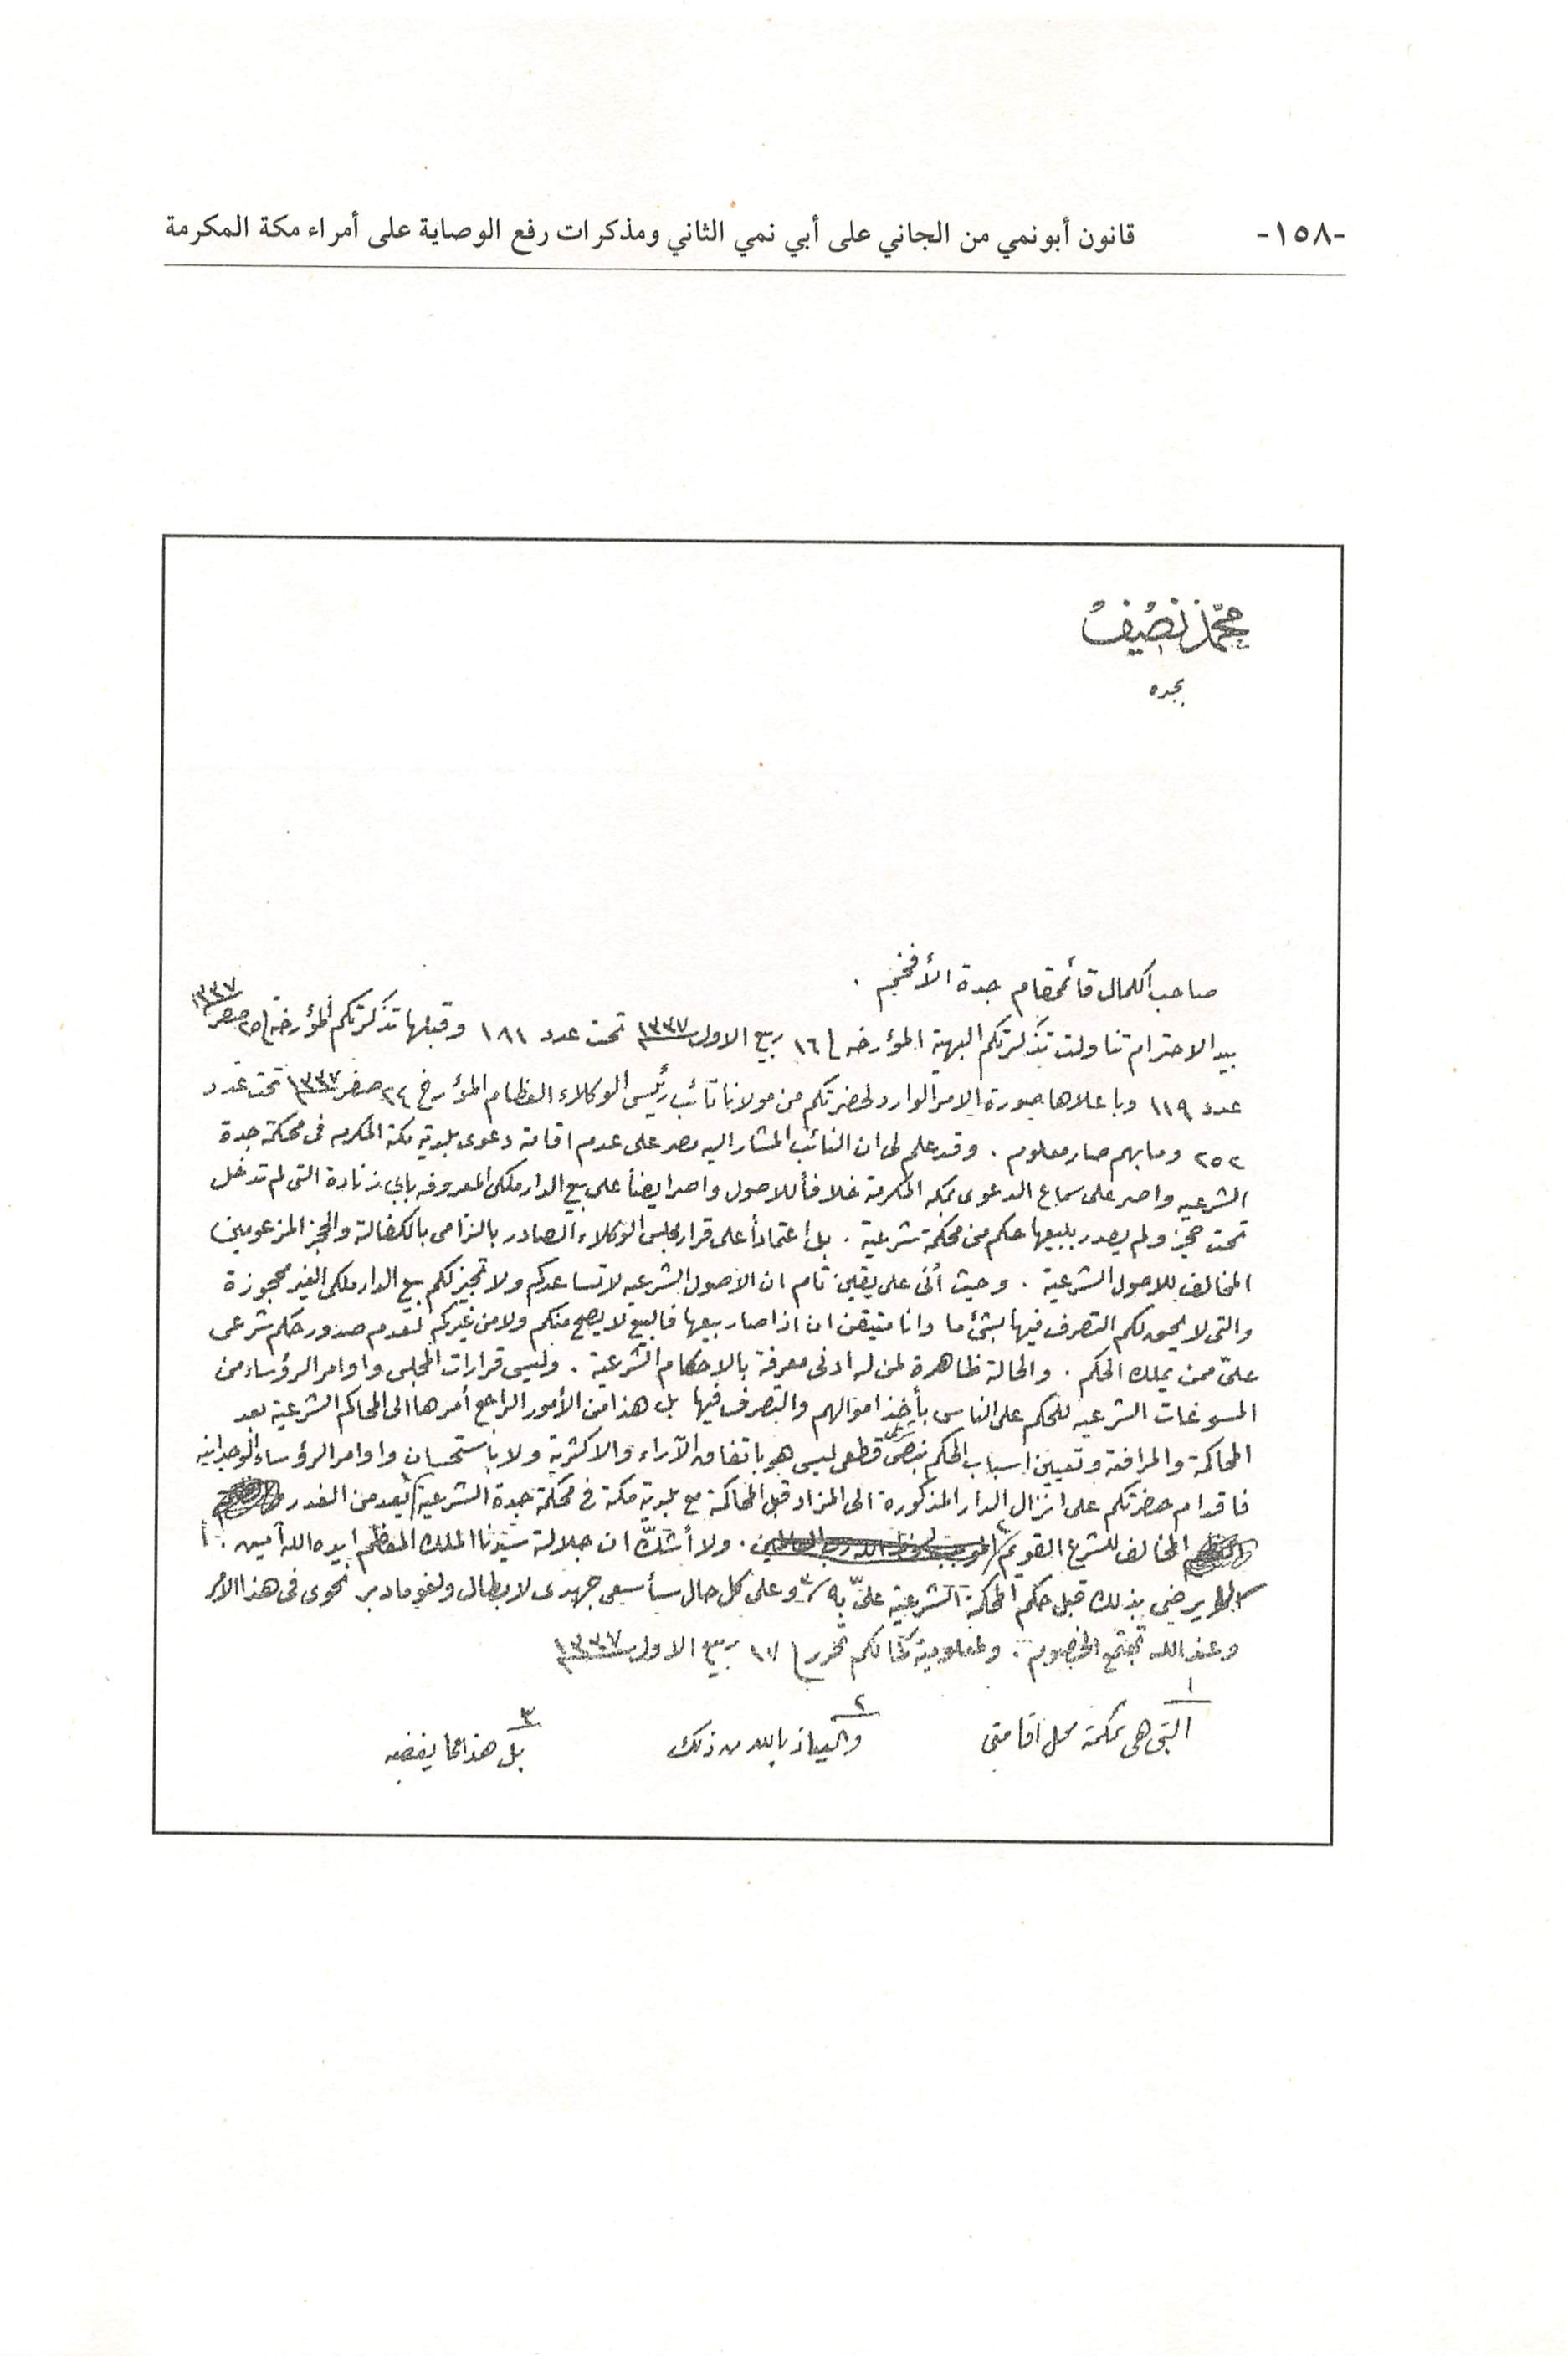 -١٥٨- قانون أبونمي من الجاني على أبي نمي الثاني ومذكرات رفع الوصاية على أمراء مكة المكرمة
محمد نصيف
بجده
صاحب الكمال قائمقام جدة الأفخم .
بيد الاحترام تناولت تذكرتكم البهية المؤرخه ١٦ ربيع الاول ١٣٣٧ تحت عدد ١٨١ وقبلها تذكرتكم المؤرخة ٢٥ صفر ١٣٣٧
عدد ١١٩ وباعلاها صورة الامر الوارد لحضرتكم من مولانا نائب رئيس الوكلاء الفظام المؤرخ ٢٤ صفر ١٣٣٧ تحت عدد
٢٥٢ وما بهم صار معلوم . وقد علم لى ان النائب المشار اليه مصر على عدم اقامة دعوى بلدية مكة المكرمه فى محكمة جدة
الشرعيه واصر على سماع الدعوى بمكه المكرمة خلافاً للاصول واصر ايضاً على بيع الدار ملكى المعروفه بابى زنادة التى لم تدخل
تحت حجز ولم يصدر ببيعها حكم من محكمة شرعية . بل اعتماداً على قرار مجلس الوكلاء الصادر بالزامى بالكفالة والحجز المزعومين
المخالف للاصول الشرعية . وحيث أنى على يقين تام ان الاصول الشرعيه لا تساعدكم ولا تجيز لكم بيع الدار ملكى الغير محجوزة
والتى لا يحق لكم التصرف فيها بشئ ما وانا متيقن ان اذا صار بيعها فالبيع لا يصح منكم ولا من غيركم لعدم صدور حكم شرعى
علىّ ممن يملك الحكم . والحالة ظاهرة لمن له ادنى معرفة بالاحكام الشرعية . وليس قرارات المجلس واوامر الرؤساء من
المسوغات الشرعيه للحكم على الناس بأخذ اموالهم والتصرف فيها بل هذا من الأمور الراجع أمرها الى المحاكم الشرعية بعد
المحاكمة والمرافقة وتعيين اسباب الحكم بنص شرعى قطعى ليس هو باتفاق الآراء والاكثرية ولا باستحسان واوامر الرؤساء الوجدانيه
فاقدام حضرتكم على انزال الدار المذكورة الى المزاد قبل المحاكمة مع بلدية مكة فى محكمة جدة الشرعية ١ يعد من الغدر
المخالف للشرع القويم ٢ . ولا أشكّ ان جلالة سيدنا الملك المعظم ايده الله آمين
لا يرضى بذلك قبل حكم المحكمة الشرعية علىّ به ٣ وعلى كل حال سأسعى جهدى لابطال ولغو ما دبر نحوى فى هذا الأمر
وعند الله تجتمع الخصوم . ولمعلومية كمالكم تحرر ١٧ ربيع الاول ١٣٣٧
١ ٢ ٣
التى هى بمكمة محل اقامتى والعياذ بالله من ذلك بل هذا مما يغضبه